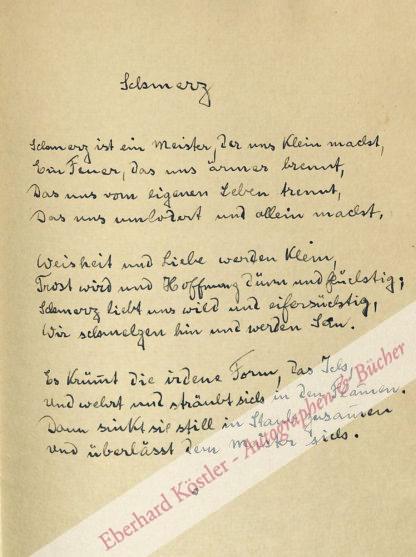 Schmerz
Schmerz ist ein Meister, der uns klein macht,
Ein Feuer, das uns ärmer brennt,
Das uns vom eigenen Leben trennt,
Das uns umlodert und allein macht.
Weisheit und Liebe werden klein,
Trost wird und Hoffnung dünn und flüchtig;
Schmerz liebt uns wild und eifersüchtig,
Wir schmelzen hin und werden Sein.
Es krümmt die irdene Form, das Ich,
Und wehrt und sträubt sich in den Flammen.
Dann sinkt sie still in Staub zusammen
Und überlässt dem Meister sich.
Eberhard Köstler - Autographen & Bücher